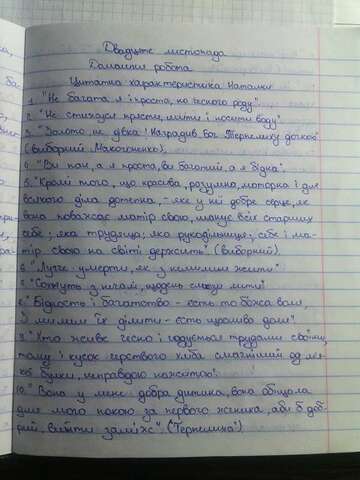 Двадцяте листопада
Домашня робота
Цитатна характеристика Наталки
1. "Не багата я і проста, но чесного роду"
2. "Не стижуся прясти, шити і носити воду"
3. "Золото, не дівка! Наградив бог Терпелиху дочкою"
(виборний Макогоненко).
4. "Ви пан, а я проста, ви багатий, а я бідна".
5. "Крomі того, що красива, розумна, моторна і для
всякого діла дотепна, - яке у неї добре серце, як
вона поважає матір свою, шанує всіх старших
себе; яка трудяща; яка рукодільниця; себе і ма-
тір свою на світі держить" (виборний)
6. "Лучче умерти, як з немилим жити"
8. "Бідність і багатство - есть то божа воля,
З милим їх ділити - есть щаслива доля"
9. "Хто живе чесно і годується трудами своїми,
тому і кусок черствого хліба смачніший од мя-
кої булки, неправдою нажитої"
10. "Вона у мене добра дитина, вона обіщала
для мого покою за первого жениха, аби б доб-
рий, вийти заміж" (Терпелиха)